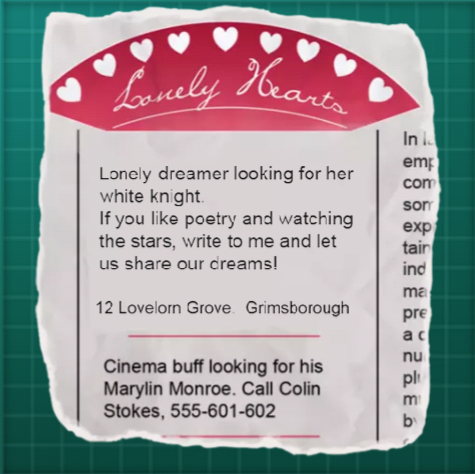 Lonely Hearts
Lonely dreamer looking for her
white knight.
If you like poetry and watching
the stars, write to me and let
us share our dreams!
12 Lovelorn Grove. Grimsborough
Cinema buff looking for his
Marylin Monroe. Call Colin
Stokes, 555-601-602
In
emp
com
som
exp
tain
ind
ma
pre
a c
nu
pl
m
by